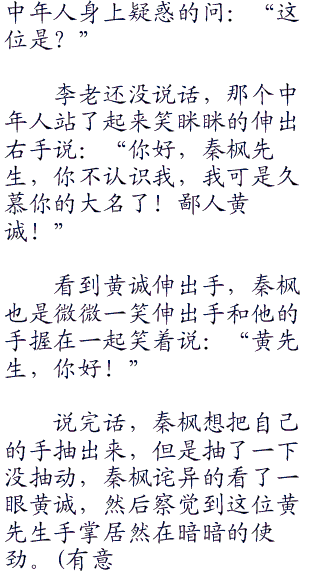 中年人身上疑惑的问：“这
位是？”
李老还没说话，那个中
年人站了起来笑眯眯的伸出
右手说：“你好，秦枫先
生，你不认识我，我可是久
慕你的大名了！鄙人黄
诚！”
看到黄诚伸出手，秦枫
也是微微一笑伸出手和他的
手握在一起笑着说：“黄先
生，你好！”
说完话，秦枫想把自己
的手抽出来，但是抽了一下
没抽动，秦枫诧异的看了一
眼黄诚，然后察觉到这位黄
先生手掌居然在暗暗的使
劲。(有意